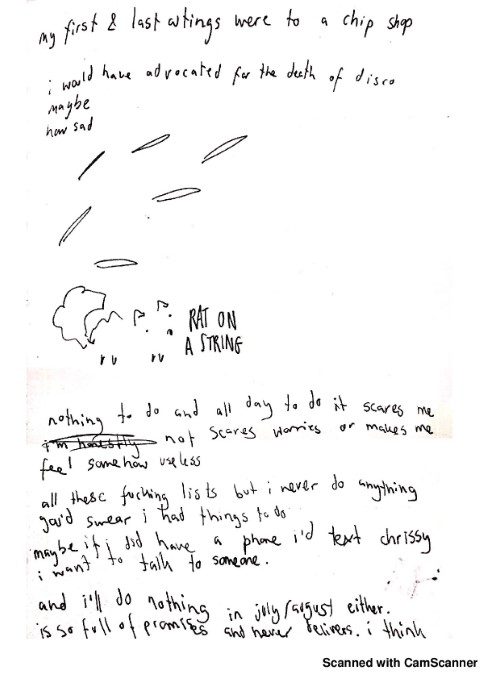 my first & last outings were to a chip shop
i would have advocated for the death of disco
maybe
how sad
RAT ON
A STRING
nothing to do and all day to do it scares me
i'm honestly not scares worries or makes me
feel somehow useless
all these fucking lists but i never do anything
you'd swear i had things to do
maybe if i did have a phone i'd text chrissy
i want to talk to someone.
and i'll do nothing in july/august either.
is so full of promises and never delivers. i think
Scanned with CamScanner